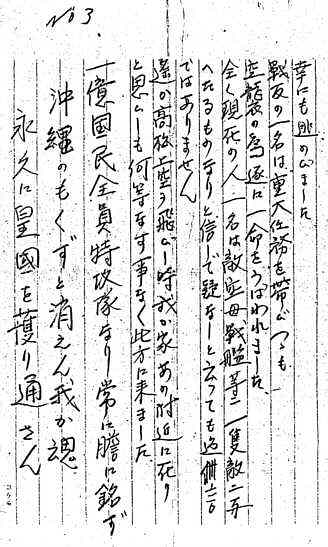 No 3
幸にも逃のびました
戦友の一名は重大任務を帯びつゝも
空襲の為遂に一命をうばわれました
全く現在の人一名は敵空母戦艦等一隻敵二万
へたるものなりと信じて疑なしと云っても過
ではありません
遙か高度上空ヲ飛ぶ時我が家あの附近に在り
と思ふも何等なす事なく此方に来ました
一億國民全員特攻隊なり常に膽に銘ず
沖縄のもくずと消えん我が魂
永久に皇國を護り通さん